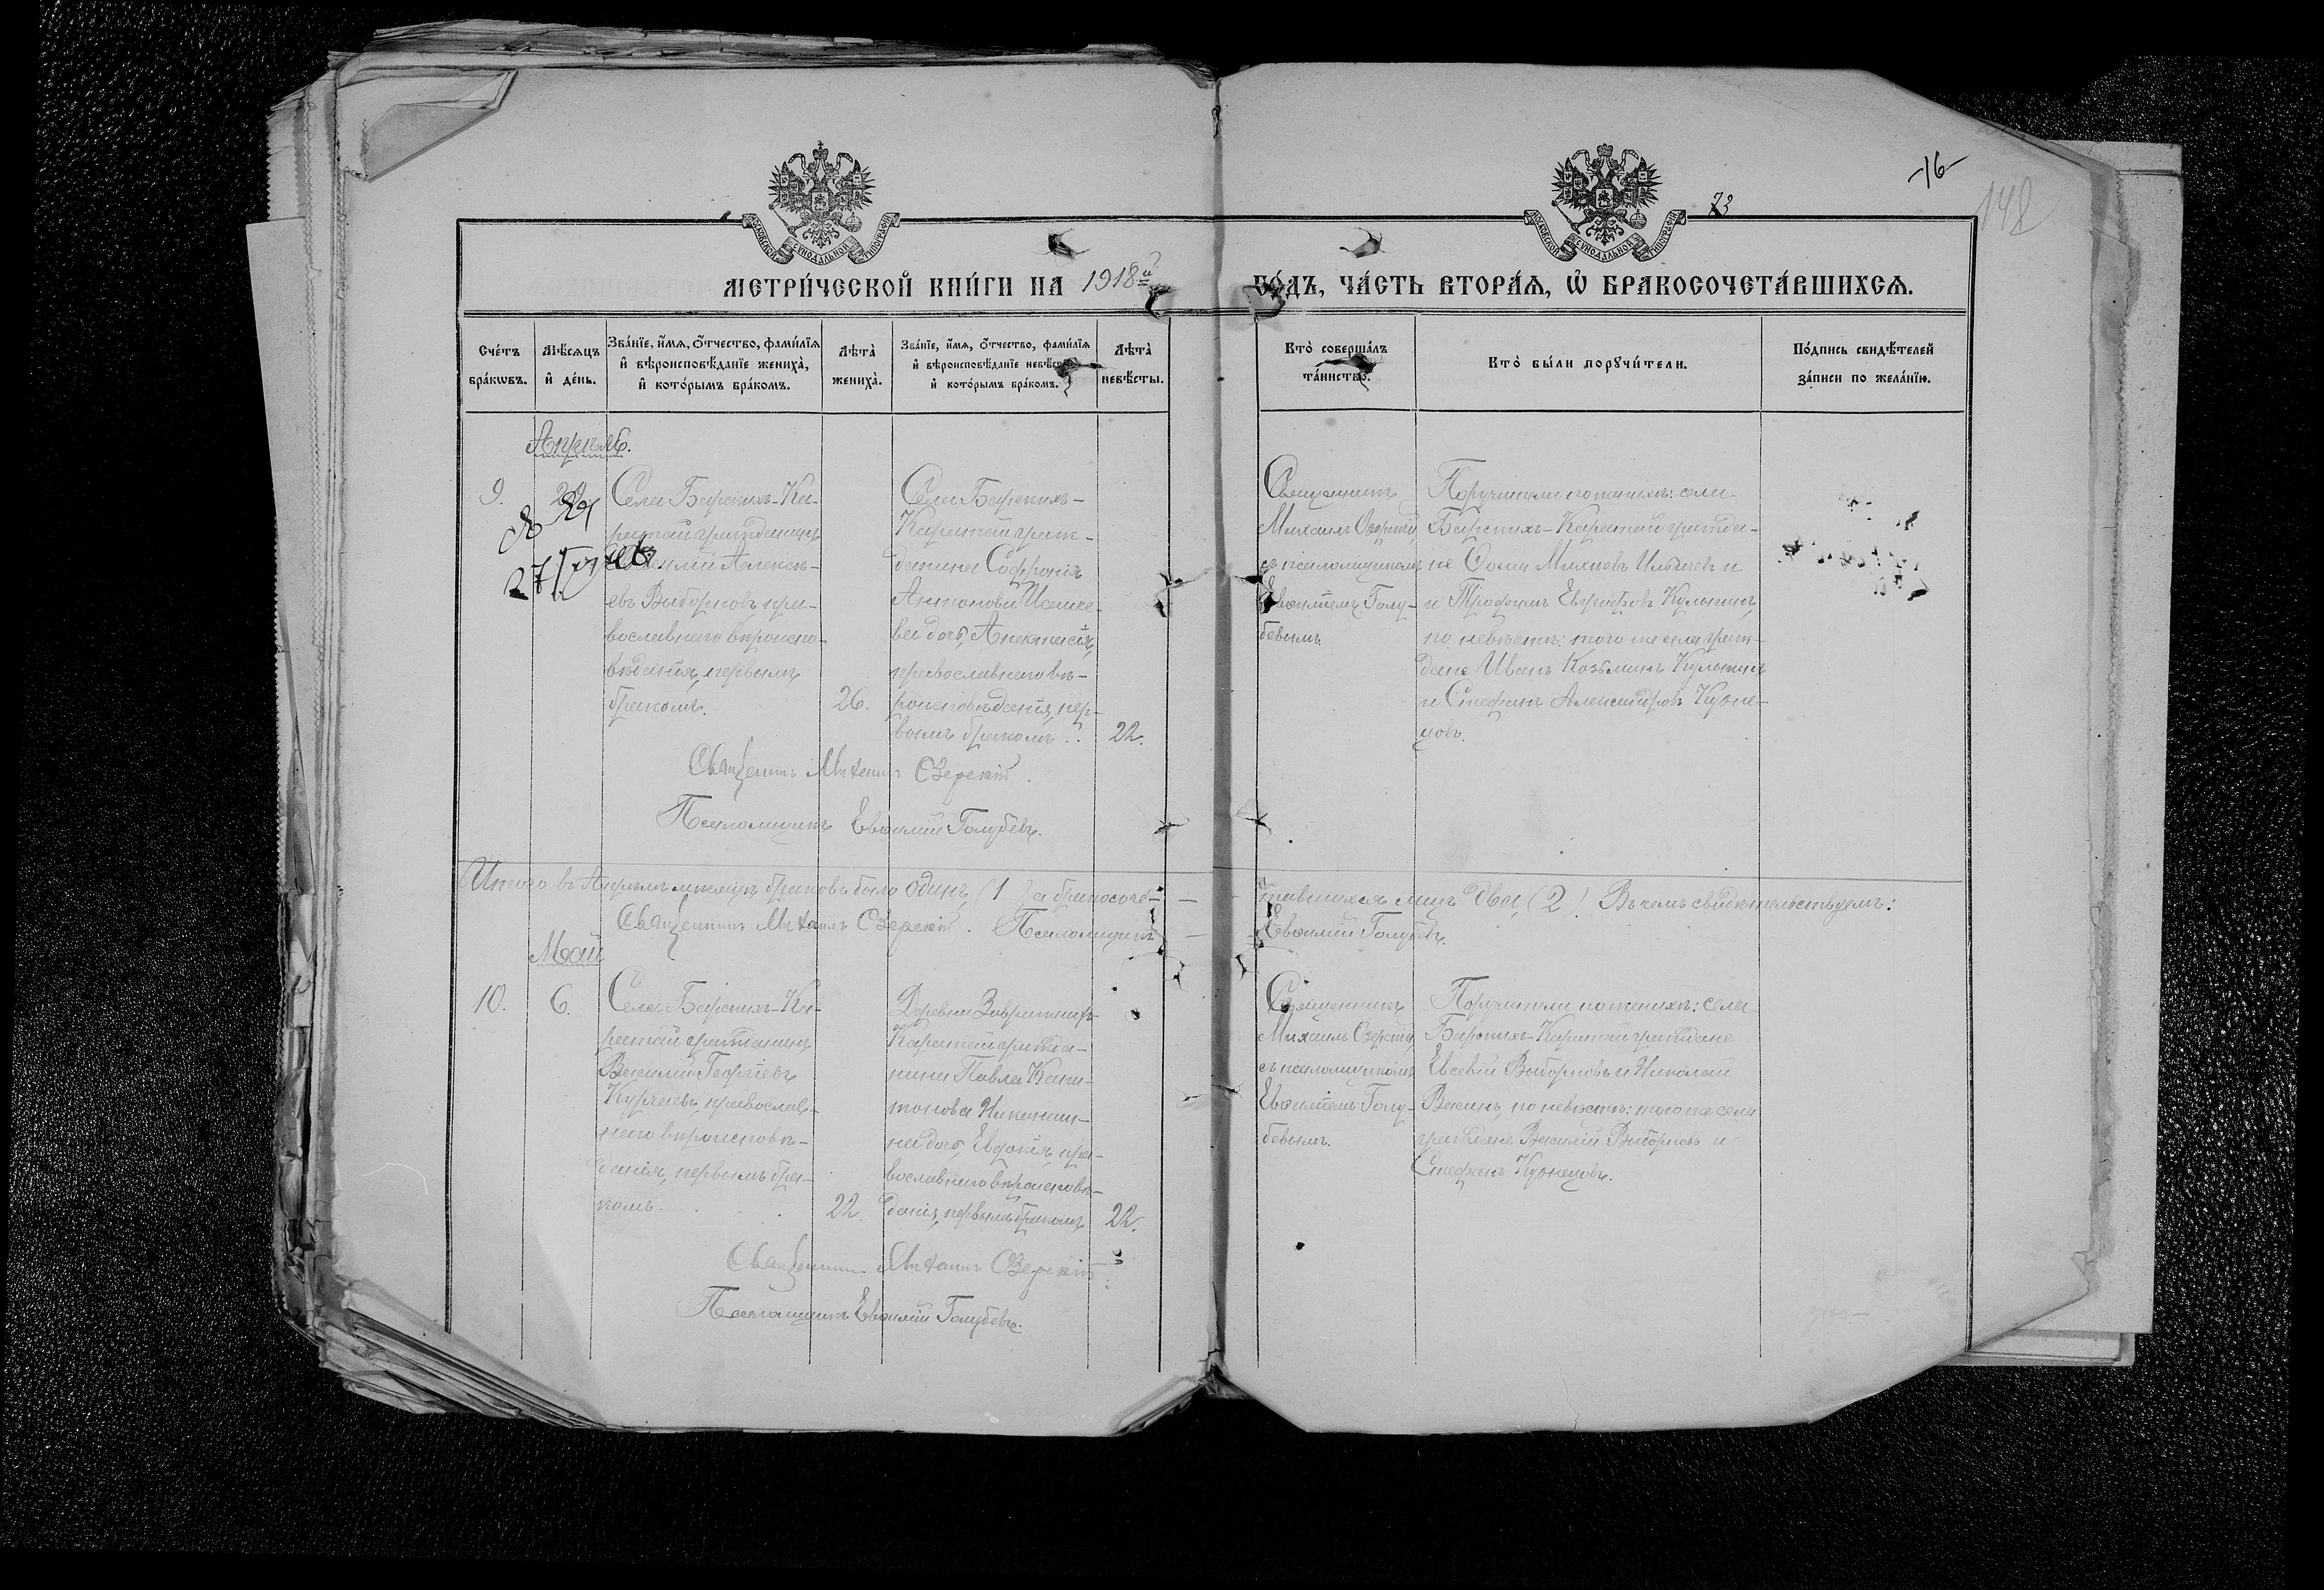 -16-
148
73
МОСКОВСКОЙ СѴНОДАЛЬНОЙ ТИПОГРАФІИ
МОСКОВСКОЙ СѴНОДАЛЬНОЙ ТИПОГРАФІИ
МЕТРИ́ЧЕСКОЙ КНИ́ГИ НА 1918й ГО́ДЪ, ЧА́СТЬ ВТОРА́Я, Ѡ БРАКОСОЧЕТА́ВШИХСЯ.
Сче́тъ бра́кѡвъ.
Мѣ́сяцъ и де́нь.
Зва́нїе, и́мя, о́тчество, фами́лїя и вѣроисповѣ́данїе жениха̀, и кото́рымъ бра́комъ.
Лѣта̀ жениха̀.
Зва́нїе, и́мя, о́тчество, фами́лїя и вѣроисповѣ́данїе невѣ́сты, и кото́рымъ бра́комъ.
Лѣта̀ невѣ́сты.
Кто̀ соверша́лъ та́инство.
Кто̀ бы́ли порꙋчи́тели.
По́дпись свидѣ́телей за́писи по жела́нїю.
Апрѣль.
9.
Села Барскихъ-Ка-
ратай гражданинъ
Алексѣ-
евъ Выборновъ пра-
вославнаго вѣроиспо-
вѣданія, первымъ
бракомъ.
26.
Села Барскихъ-
Каратай граж-
данина Софронія
Антонова
дочь, Анастасія,
православнаго вѣ-
роисповѣданія, пер-
вымъ бракомъ.
22.
Священникъ
Михаилъ Озерскій
съ псаломщикомъ
Евѳиміемъ Голу-
бевымъ.
Поручители по женихѣ: села
Барскихъ-Каратай гражда-
не Ѳома Ильичевъ и
и Трофимъ Евграфовъ Кулькинъ,
по невѣстѣ: того же села граж-
дане Иванъ Козьминъ Кулькинъ
и Стефанъ Александровъ Кузне-
цовъ.
Священникъ Михаилъ Озерскій.
Псаломщикъ Евѳимій Голубевъ.
Итого въ Апрѣлѣ мѣсяцѣ браковъ было одинъ (1), а бракосоче-
тавшихся лицъ два (2). Въ чемъ свидѣтельствуемъ:
Священникъ Михаилъ Озерскій. Псаломщикъ
Евѳимій Голубевъ.
Май
10.
6.
Села Барскихъ-Ка-
ратай гражданинъ
Василій Георгіевъ
православ-
наго вѣроисповѣ-
данія, первымъ бра-
комъ.
22.
Деревни
Каратай гражда-
нина Павла Капи-
тонова
дочь, Евдокія, пра-
вославнаго вѣроисповѣ-
данія, первымъ бракомъ
22.
Священникъ
Михаилъ Озерскій
съ псаломщикомъ
Евѳиміемъ Голу-
бевымъ.
Поручители по женихѣ: села
Барскихъ-Каратай граждане
Евсевій Выборновъ и Николай
по невѣстѣ: того же села
граждане Василій Выборновъ и
Стефанъ Кузнецовъ.
Священникъ Михаилъ Озерскій
Псаломщикъ Евѳимій Голубевъ.